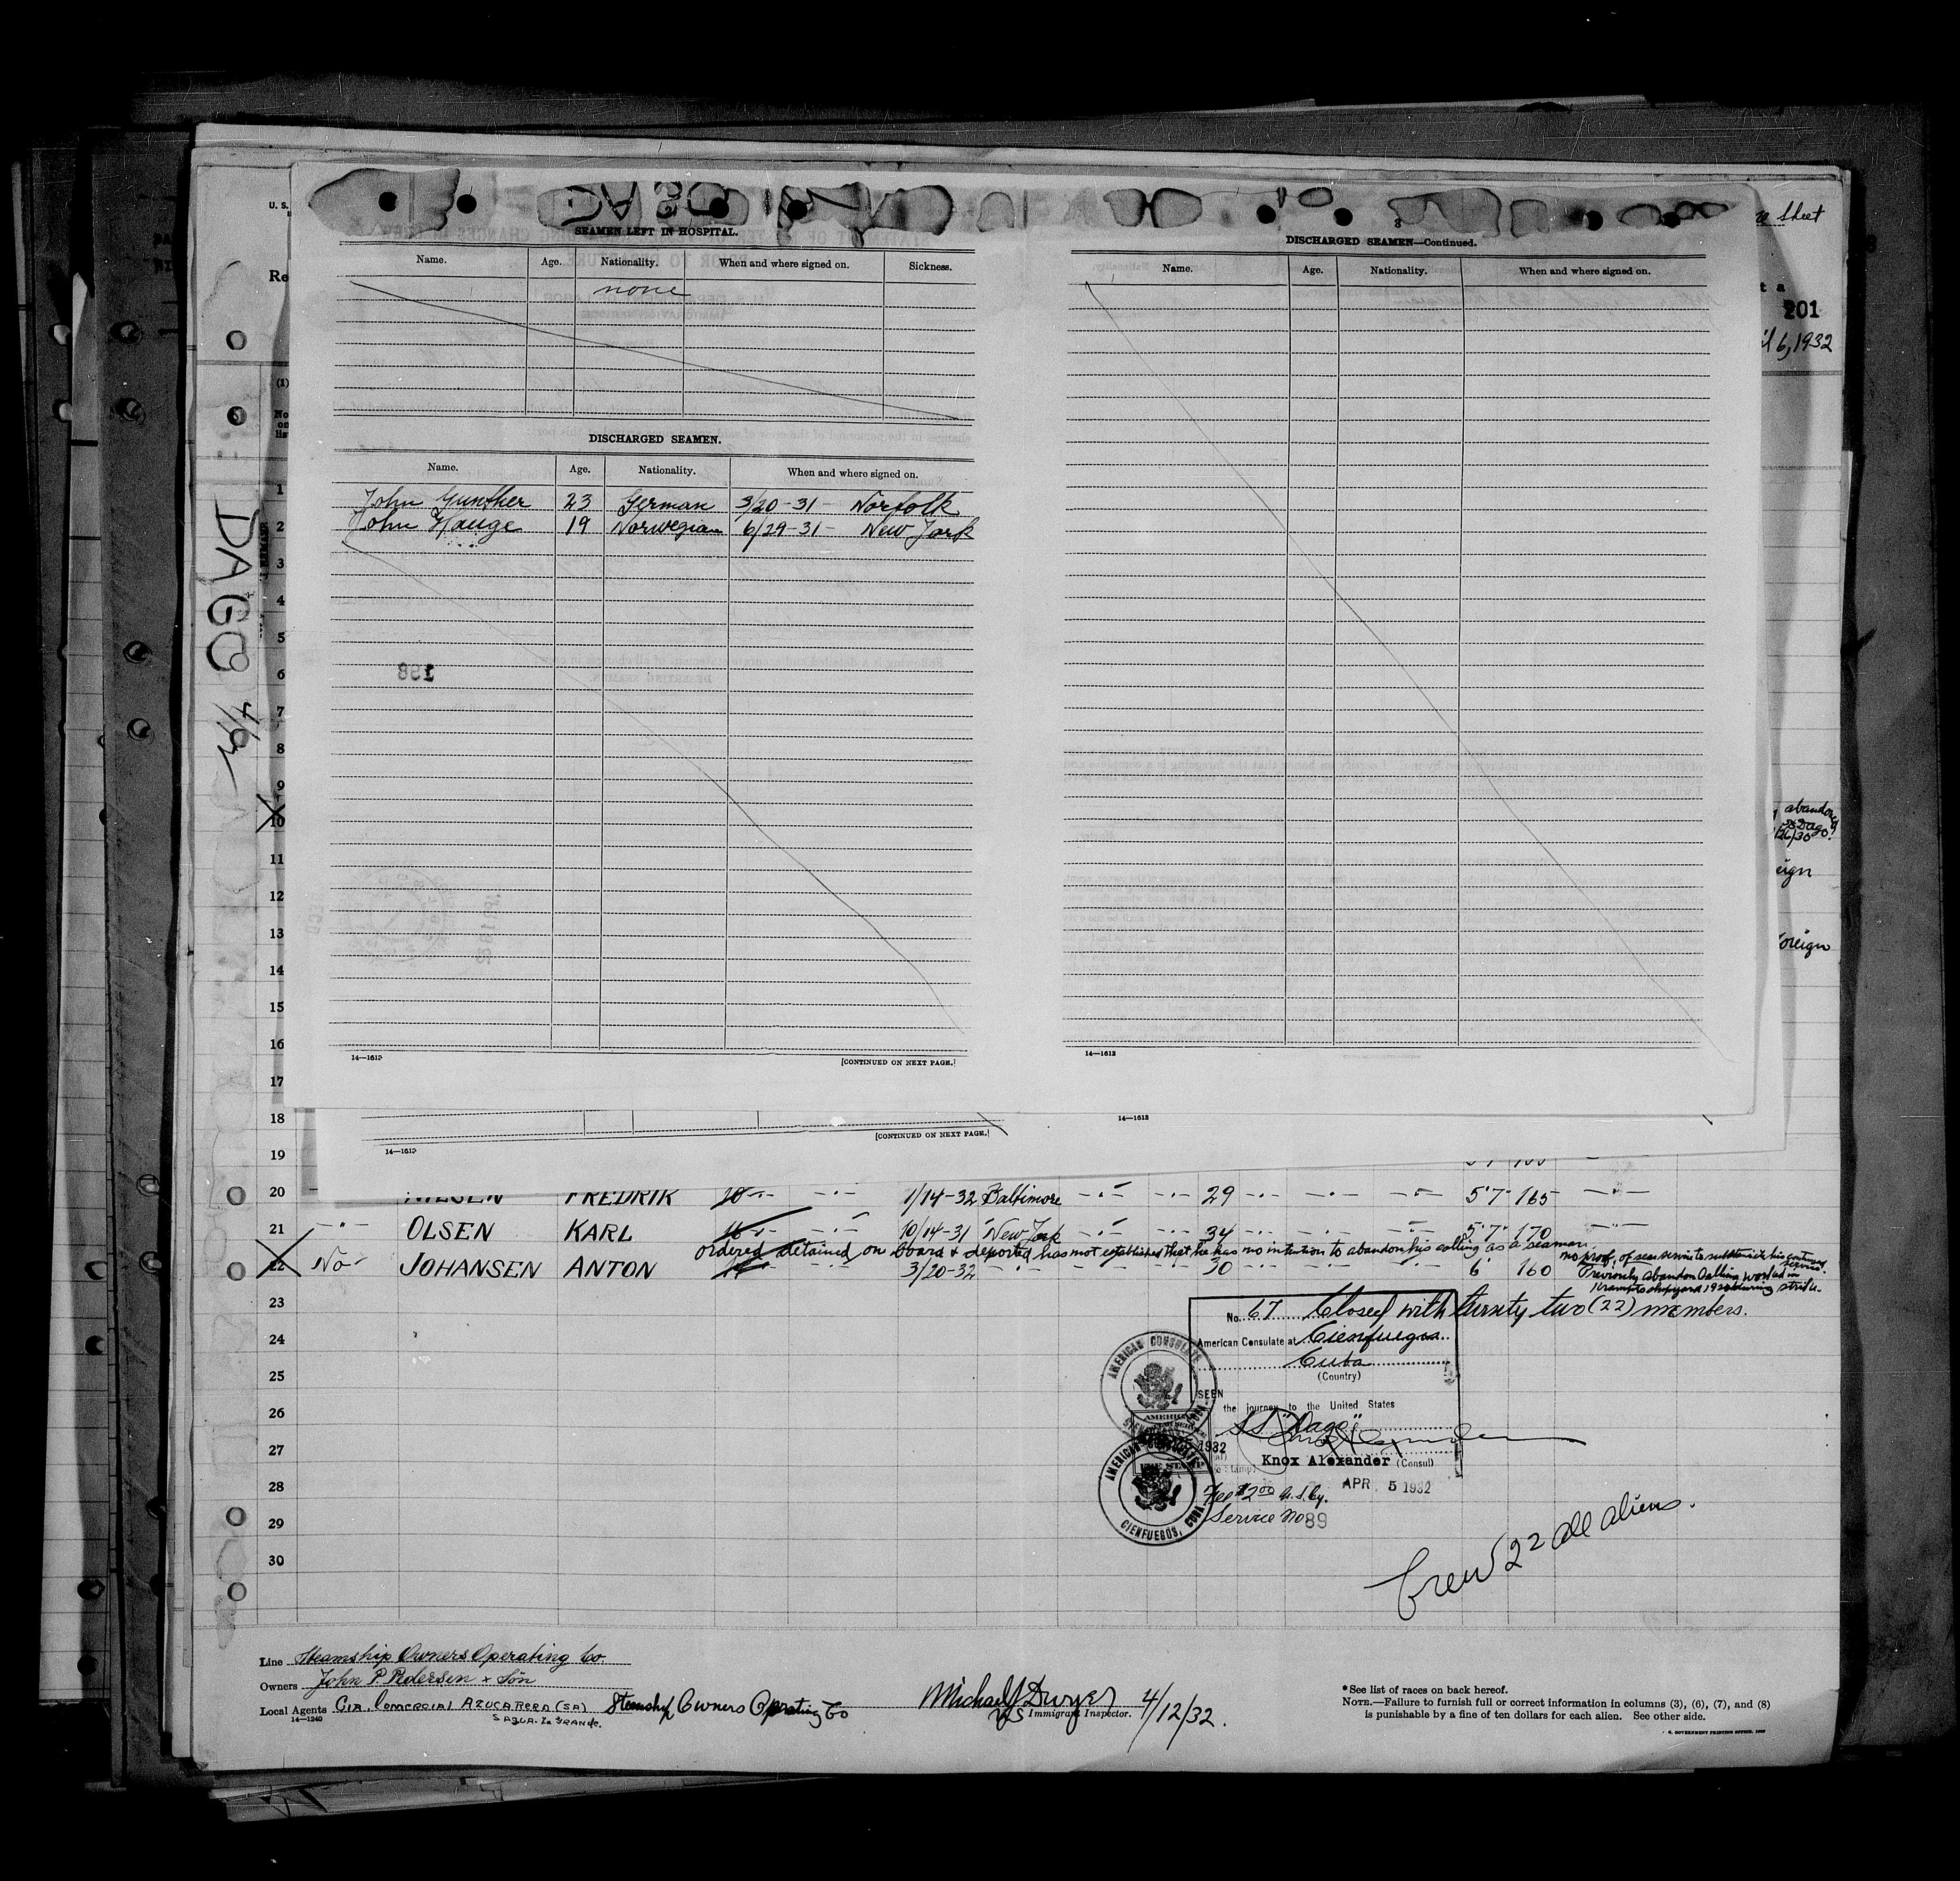 U. S.
Sheet
Re
201
6, 1932
SEAMEN LEFT IN HOSPITAL.
Name. Age. Nationality. When and where signed on. Sickness.
none
DISCHARGED SEAMEN.
Name. Age. Nationality. When and where signed on.
John Gunther 23 German 3/20-31- Norfolk
John Hauge 19 Norwegian 6/29-31- New York
198
14—1613 [CONTINUED ON NEXT PAGE.]
DISCHARGED SEAMEN—Continued.
Name. Age. Nationality. When and where signed on.
14—1613
DAGO 4/6/32
(1)
No. on list
1
2
3
4
5
6
7
8
9
10
11
12
13
14
15
16
17
18
19
abandoned
SS Dago
eign
oreign
14—1613
[CONTINUED ON NEXT PAGE.]
14—1613
20 NIELSEN FREDRIK 10 -·- -·- 1/14-32 Baltimore -·- -·- 29 -·- -·- -·- 5'7" 165 -·-
21 -·- OLSEN KARL 16 -·- -·- 10/14-31 New York -·- -·- 34 -·- -·- -·- 5'7" 170 -·-
ordered detained on board & deported has not established that he has no intention to abandon his calling as a seaman.
22 No JOHANSEN ANTON 3/20-32 -·- -·- -·- 30 -·- -·- -·- 6' 160
no proof of sea service to substantiate his continued service.
Previously abandon Calling worked in
shipyard during strike.
23
24
25
26
27
28
29
30
No. 67 Closed with twenty two (22) members.
American Consulate at Cienfuegos
Cuba
(Country)
SEEN
the journey to the United States
SS "Dago"
Knox Alexander (Consul)
APR 5 1932
Fee $2.00 U.S.Cy.
Service No 89
AMERICAN CONSULATE
CIENFUEGOS, CUBA
AMERICAN CONSULATE
CIENFUEGOS, CUBA
1932
Crew 22 all aliens.
Line Steamship Owners Operating Co.
Owners John P Pedersen & Sön
Local Agents Cia. Comercial Azucarera (SA) Steamship Owners Operating Co
14—1240 Sagua La Grande.
Michael J Dwyer 4/12/32.
US Immigrant Inspector.
*See list of races on back hereof.
NOTE.—Failure to furnish full or correct information in columns (3), (6), (7), and (8)
is punishable by a fine of ten dollars for each alien. See other side.
GOVERNMENT PRINTING OFFICE